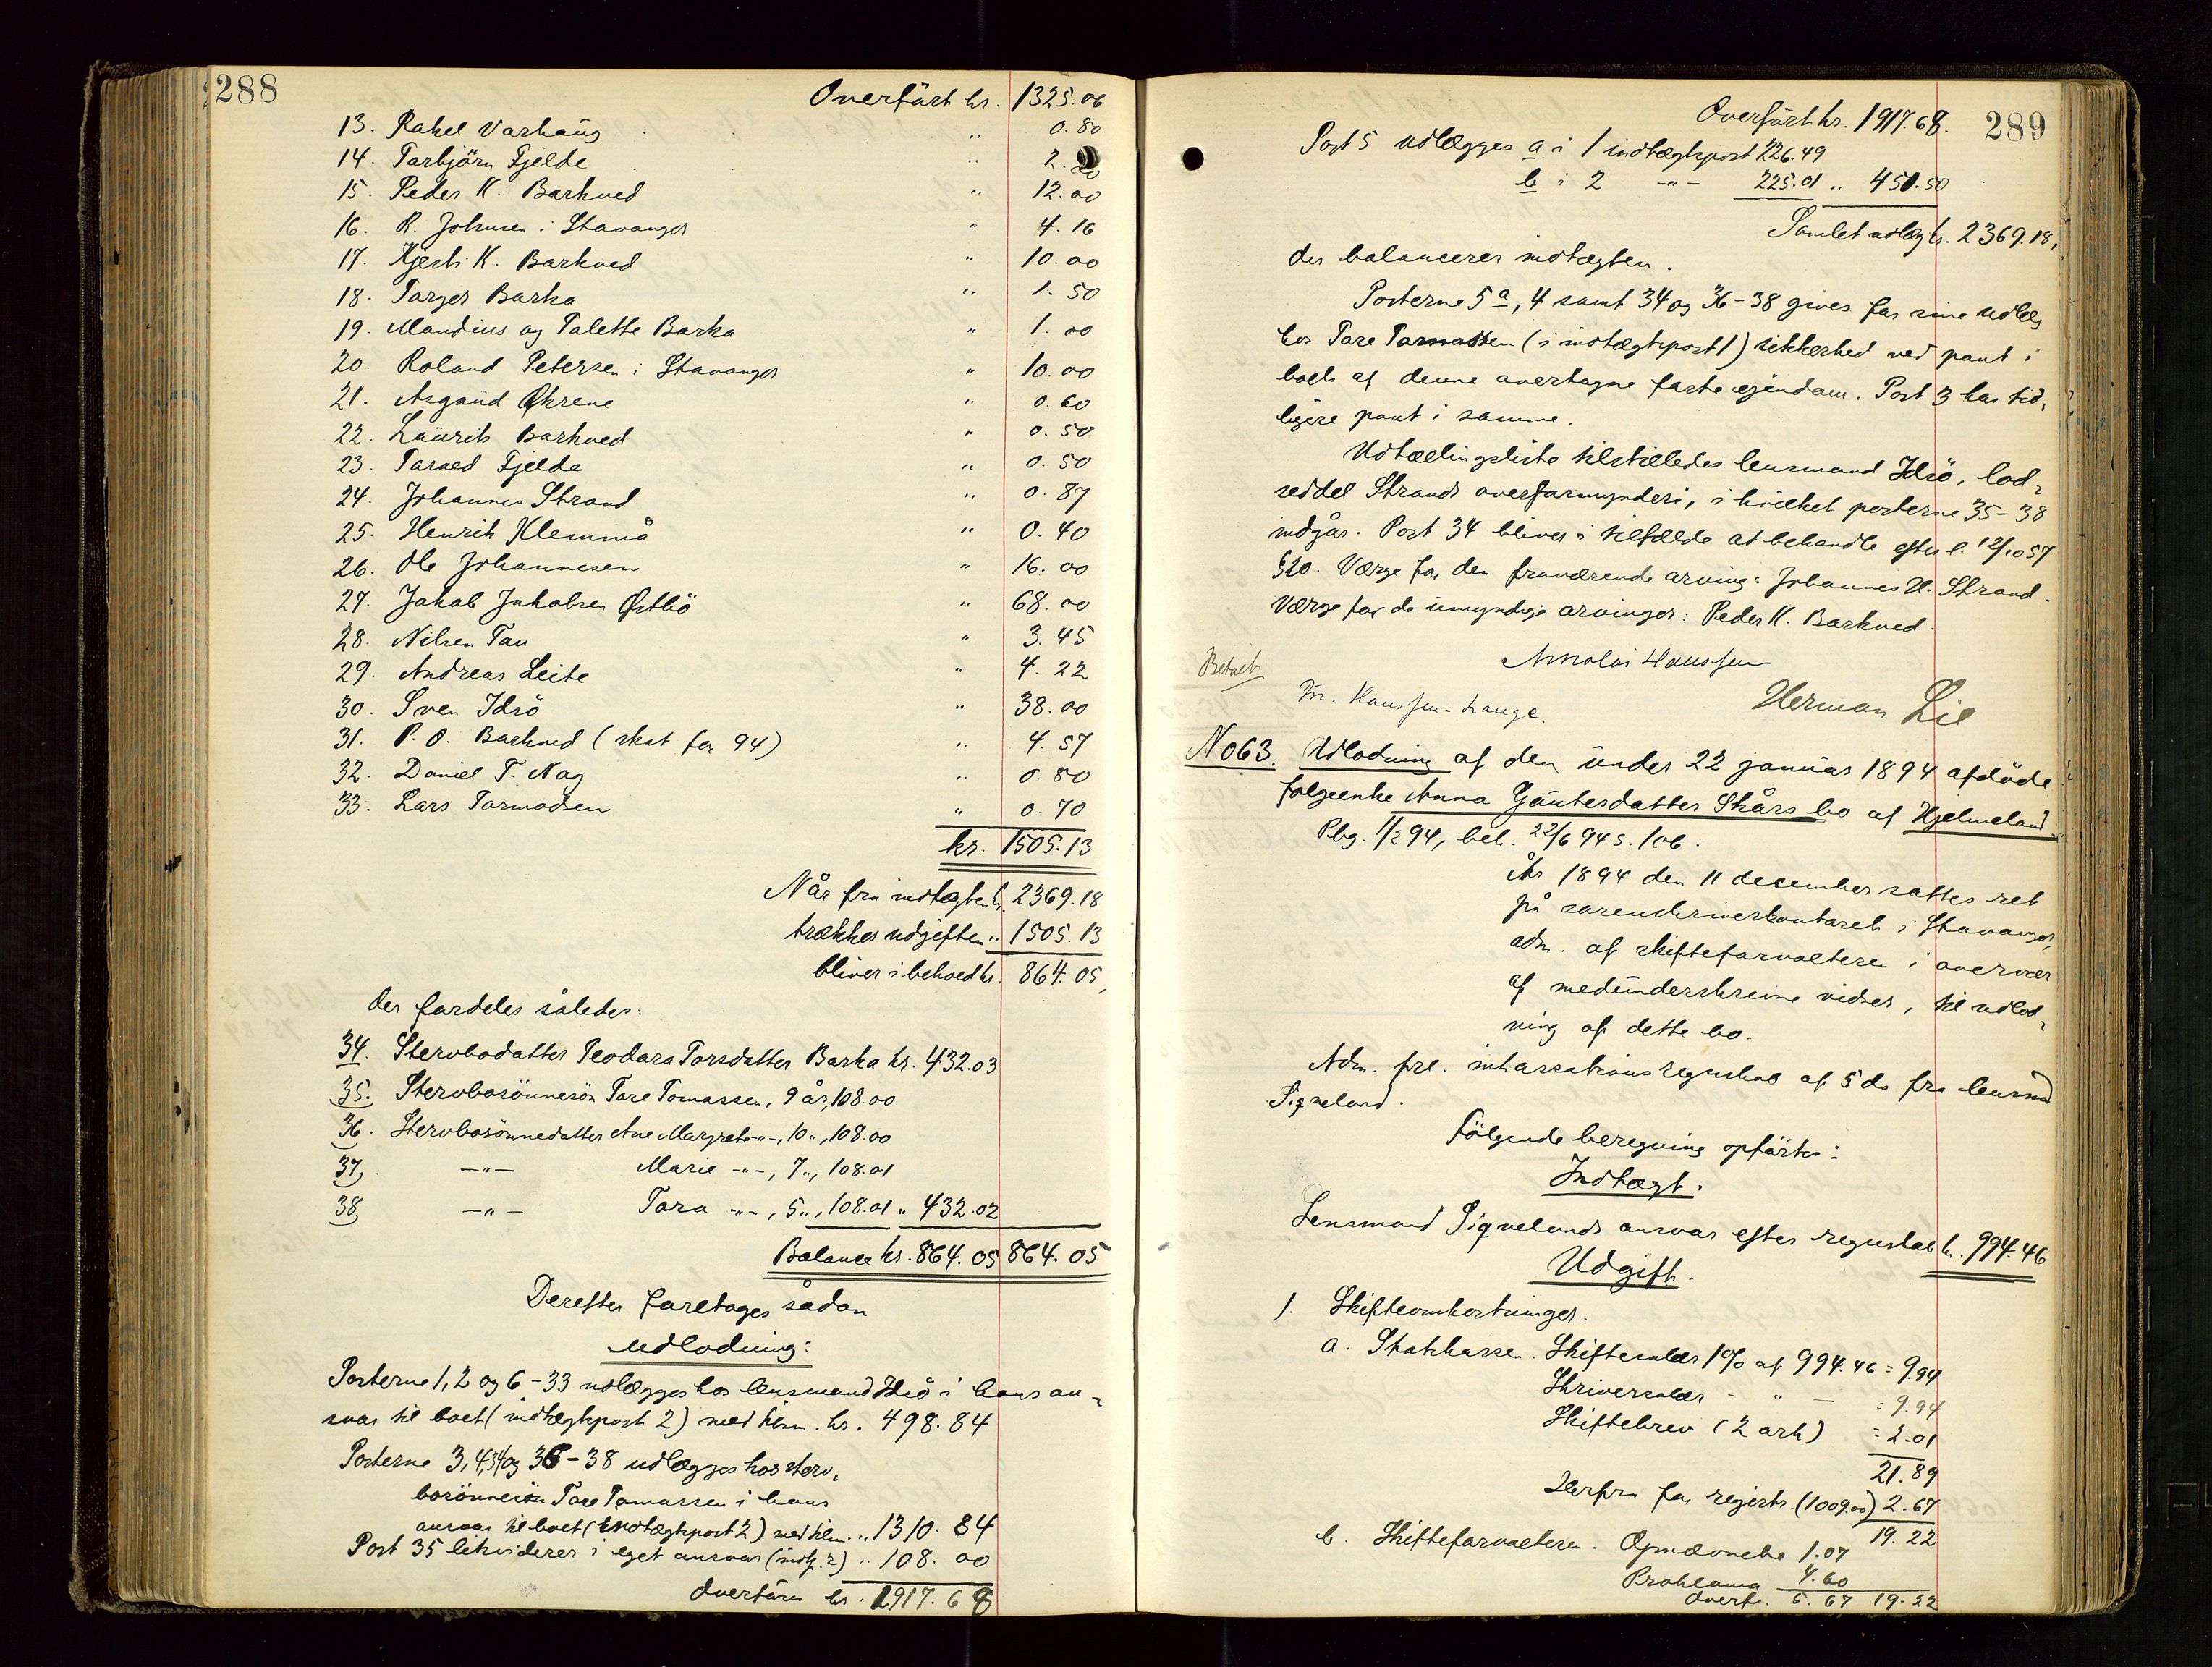 288
Overført kr. 1325.06
13. Rakel Varhaug „ 0.80
14. Tarbjörn Fjelde „ 2.
15. Peder K. Barkved „ 12.00
16. R. Johnsen i Stavanger „ 4.16
17. Kjesti K. Barkved „ 10.00
18. Targer Barka „ 1.50
19. Maudius og Talette Barka „ 1.00
20. Roland Petersen i Stavanger „ 10.00
21. Asgaud Økrene „ 0.60
22. Laurits Barkved „ 0.50
23. Tarved Fjelde „ 0.50
24. Johannes Strand „ 0.87
25. Henrik Klemmå „ 0.40
26. Ole Johannesen „ 16.00
27. Jakob Jakobsen Østbö „ 68.00
28. Nilsen Tau „ 3.45
29. Andreas Leite „ 4.22
30. Sven Idsö „ 38.00
31. P. O. Barkved (skat for 94) „ 4.57
32. Daniel T. Nag „ 0.80
33. Lars Tormodsen „ 0.70
kr. 1505.13
Når fra indtægten kr. 2369.18
trækkes udgiften „ 1505.13
bliver i behoved kr. 864.05,
der fordeles således:
34. Stervbodatter Teodora Torsdatter Barka kr. 432.03
35. Stervbosönnesön Tore Tomassen, 9 år, 108.00
36. Stervbosönnedatter Ane Margrete -„-, 10 „, 108.00
37, -„- Marie -„-, 7 „, 108.01
38, -„- Tora -„-, 5 „, 108.01 „ 432.02
Balance kr. 864.05 864.05
Derefter foretages sådan
udlodning:
Posterne 1, 2 og 6-33 udlægges hos lensmand Idsö i hans an-
svar til boet (indtægtspost 2) med tilsm. kr. 498.84
Posterne 3, 4, 34 og 36-38 udlægges hos sterv-
bosönnesön Tore Tomassen i hans
ansvar til boet (indtægtspost 2) med tilsm. „ 1310.84
Post 35 likviderer i eget ansvar (indt. 2) „ 108.00
Overføres kr. 1917.68
289
Overført kr. 1917.68.
Post 5 udlægges a i 1 indtægtspost 226.49
b i 2 -„- 225.01 „ 451.50
Samlet udlæg kr. 2369.18,
der balancerer indtægten.
Posterne 5 a, 4 samt 34 og 36-38 gives for sine udlæg
hos Tore Tomassen (i indtægtspost 1) sikkerhed ved pant i
boets af denne overtagne faste ejendom. Post 3 har tid-
ligere pant i samme.
Udtællingsliste tilstilledes lensmand Idsö, lod-
seddel Strands overformynderi, i hvilket posterne 35-38
indgår. Post 34 bliver i tilfælde at behandle efter l. 12/10 57
§20. Værge for den fraværende arving: Johannes H. Strand.
Værge for de umyndige arvinger: Peder K. Barkved.
Betalt
Nikolai Hanssen
M. Hanssen-Lange.
Herman Lie
No 63. Udlodning af den under 22 januar 1894 afdöde
folgeenke Anna Gautersdatter Skårs bo af Hjelmeland.
Pbg. 1/2 94, beh. 22/6 94 s. 106.
År 1894 den 11 december sattes ret
på sorenskriverkontoret i Stavanger,
adm. af skifteforvalteren i overvær
af medunderskrevne vidner, til udlod-
ning af dette bo.
Adm. frl. inkassationsregnskab af 5 ds fra lensmand
Siqveland.
Følgende beregning opførtes:
Indtægt.
Lensmand Siqvelands ansvar efter regnskab kr. 994.46
Udgift.
1. Skifteomkostninger.
a. Statskassen. Skiftesalær 1% af 994.46 = 9.94
Skriversalær - „ - = 9.94
Skiftebrev (2 ark) = 2.01
21.89
Herfra for registr. (1009.00) 2.67
19.22
b. Skifteforvalteren. Opnævnelse 1.07
Proklama 4.60
Overf. 5.67 19.22